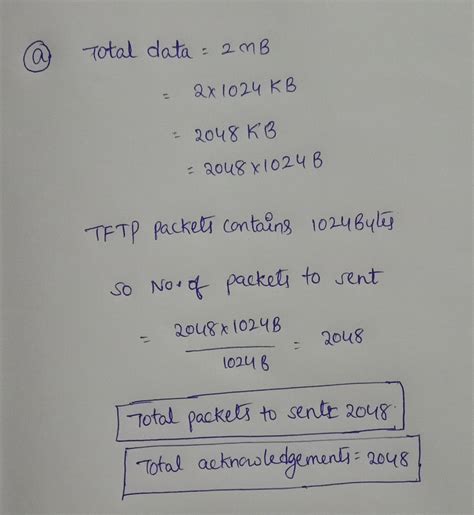 a Total data = 2MB
= 2x1024 KB
= 2048 KB
= 2048x1024B
TFTP packets contains 1024Bytes
so No. of packets to sent
= 2048x1024B / 1024B = 2048
Total packets to sent = 2048.
Total acknowledgements = 2048